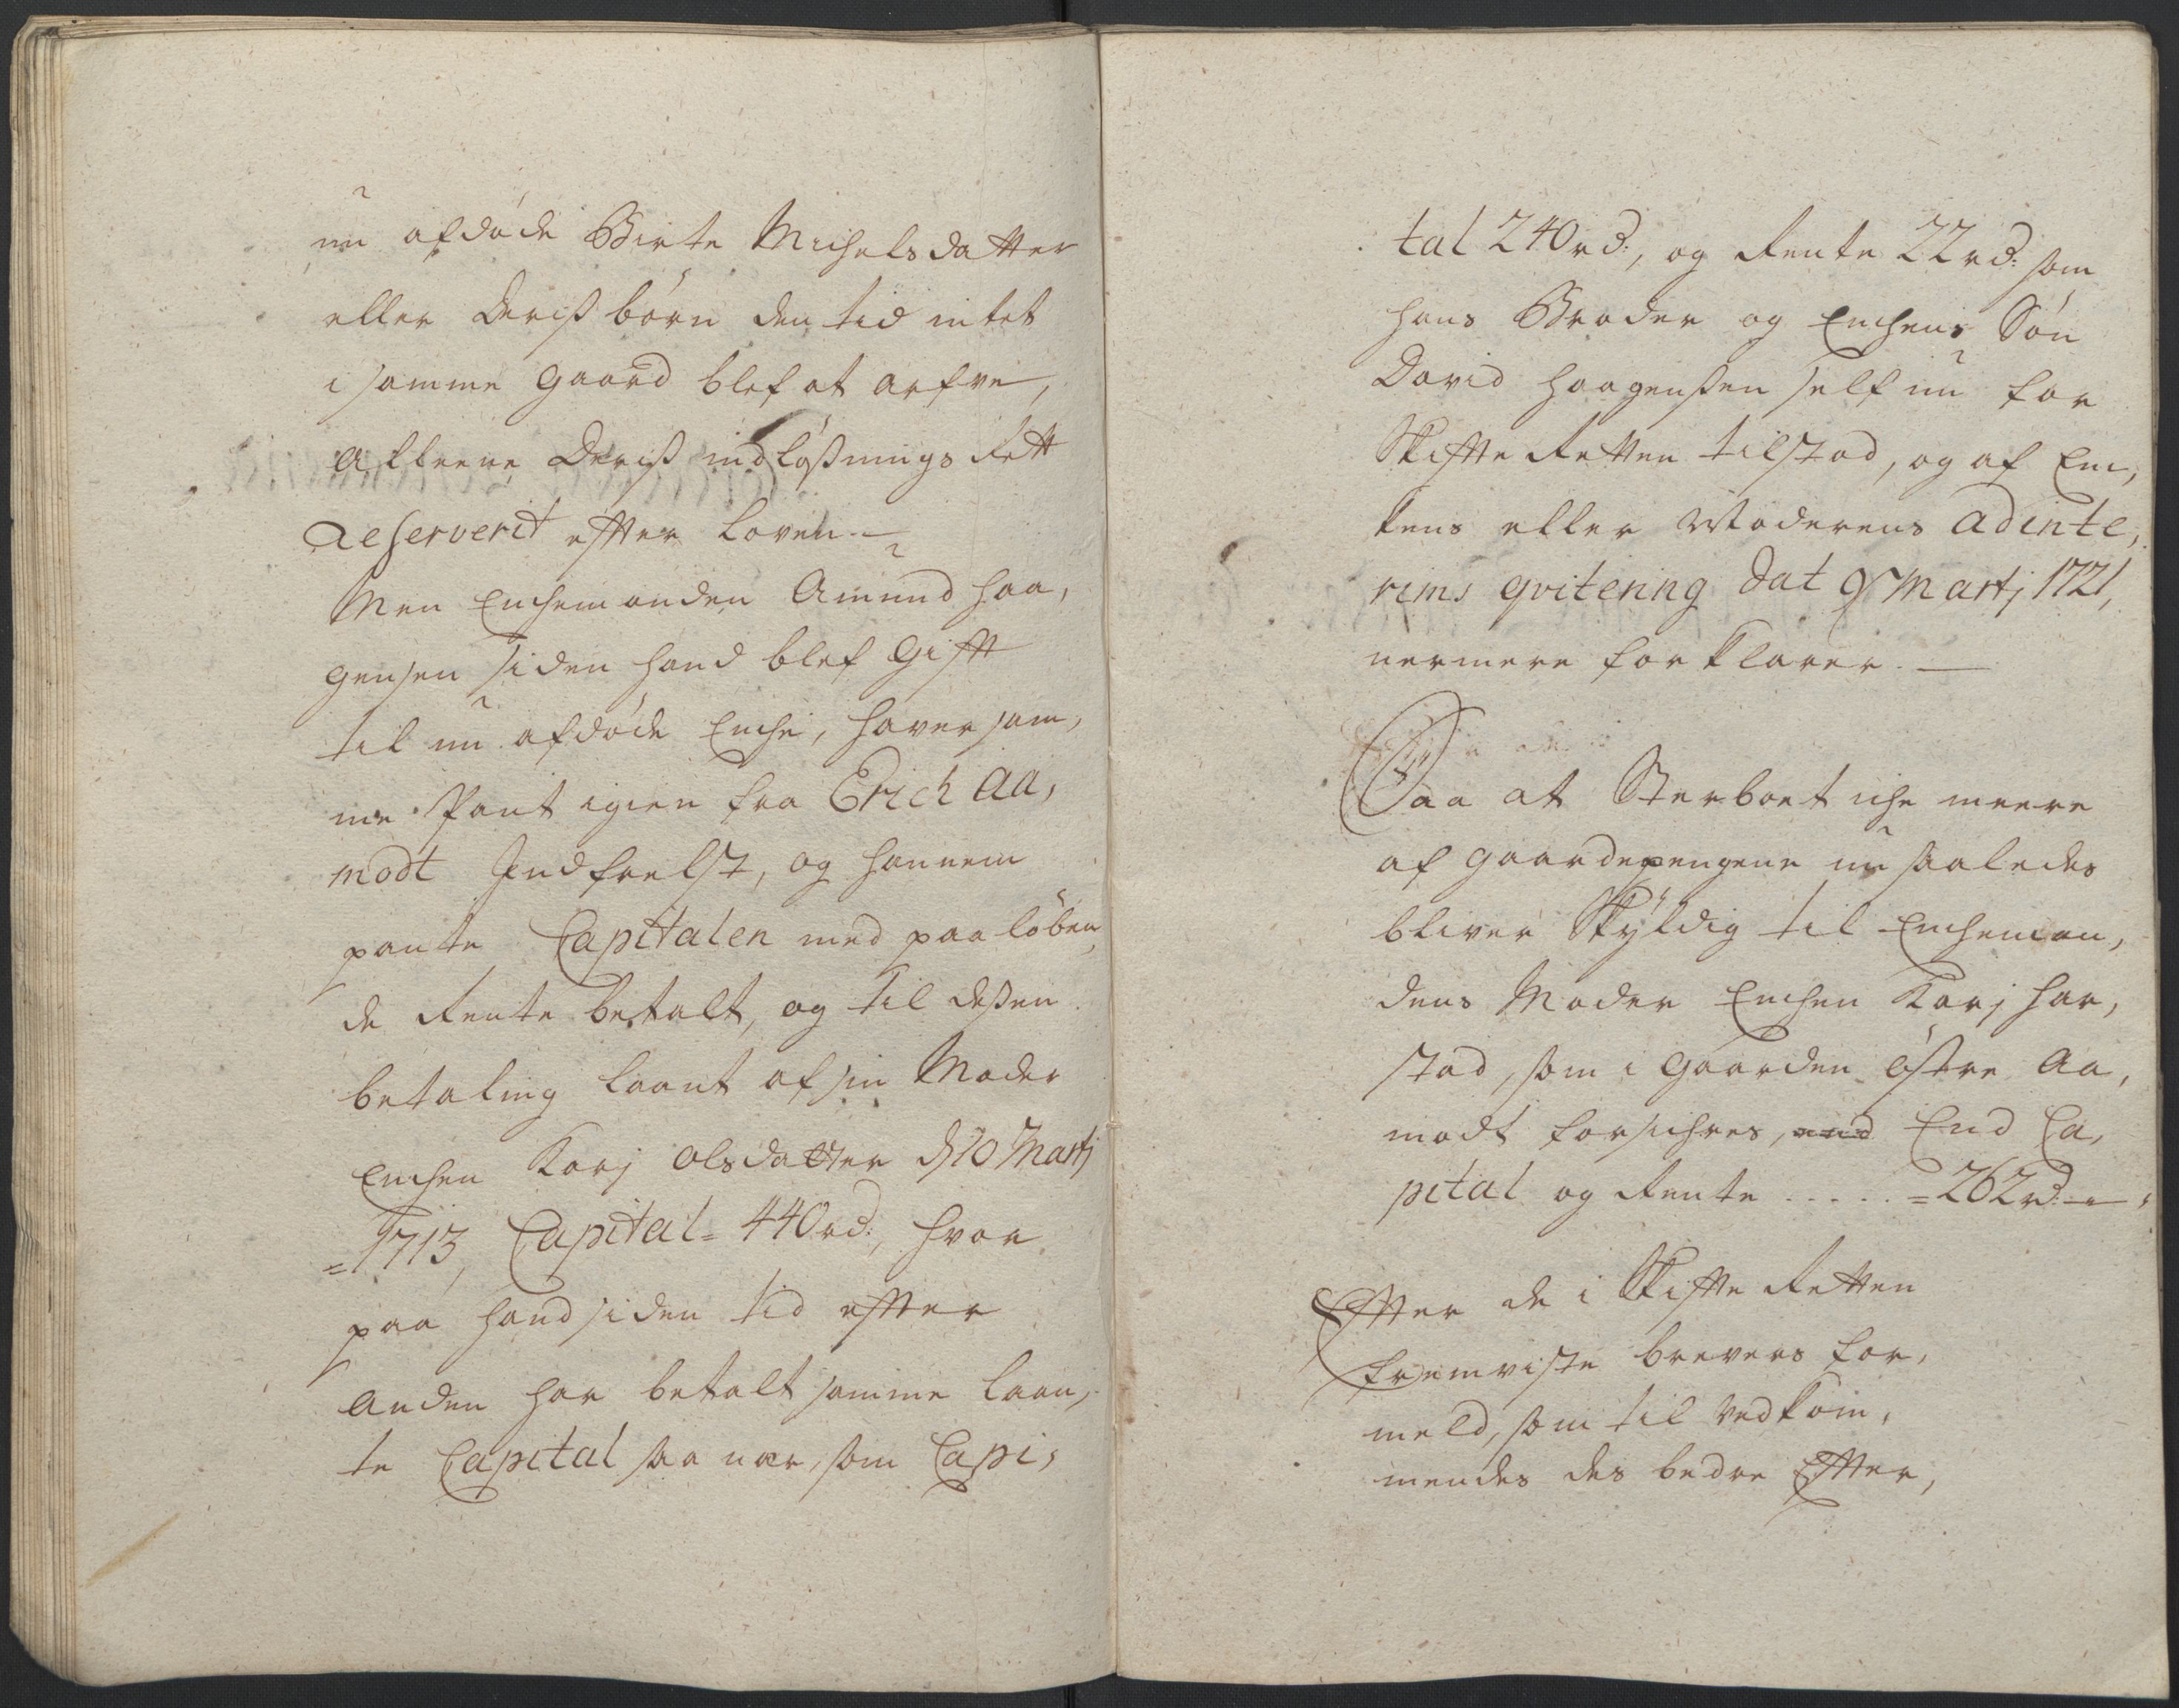 nu afdøde Birte Michelsdatter
eller Deriß børn den tid intet
i samme Gaard blef at arfve,
alleene Deriß indløßnings Rett
Reserverit effter Loven. —
Men Enchemanden Amund Haa,
gensen siden hand blef Gifft
til nu afdøde Enche, haver sam,
me Pant igien fra Erich Aa,
modt Indfrelst, og hannem
pante Capitalen med paaløben,
de Rente betalt, og til deßen
betaling laant af sin Moder
Enchen Karj Olsdatter d 10 Martj
1713, Capital = 440 rd:, hvor
paa hand siden tid effter
anden har betalt samme laan,
te Capital saa nær, som Capi,
tal 240 rd:, og Rente 22 rd: som
hans Broder og Enchens Søn
David Haagenßen self nu for
Skiffte Retten tilstod, og af En,
kens eller Moderens adinte,
rims qvitering dat 9 Martj 1721,
nermere forklarer. —
Saa at Sterboet iche meere
af Gaardepengene nu saaledes
bliver Skyldig til Encheman,
dens Moder Enchen Karj Har,
stad, som i Gaarden Østre Aa,
modt forsichres, End Ca,
pital og Rente ..... = 262 rd: —
Effter de i Skiffte Retten
fremviste brevers for,
meld, som til Vedkom,
mendes des bedre Effter,